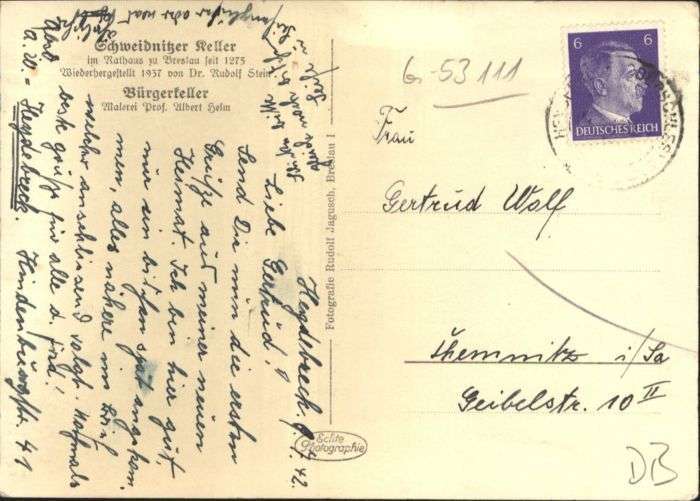 Schweidnitzer Keller
im Rathaus zu Breslau seit 1275
Wiederhergestellt 1937 von Dr. Rudolf Stein
Bürgerkeller
Malerei Prof. Albert Helm
Heydebreck, 42.
Liebe Gertrud!
Send Dir nun die ersten
Grüße aus meiner neuen
Heimat. Ich bin hier gut,
nur ein bißchen spät angekom-
men, alles nähere im Brief
welcher anschließend folgt. Nochmals
beste Grüße für alle d.
Heydebreck. Hindenburgstr. 41
Fotografie Rudolf Jagusch, Breslau 1
Echte
Photographie
6 6
DEUTSCHES REICH
53111
Frau
Gertrud Wolf
Chemnitz i/Sa
Geibelstr. 10 II
DB